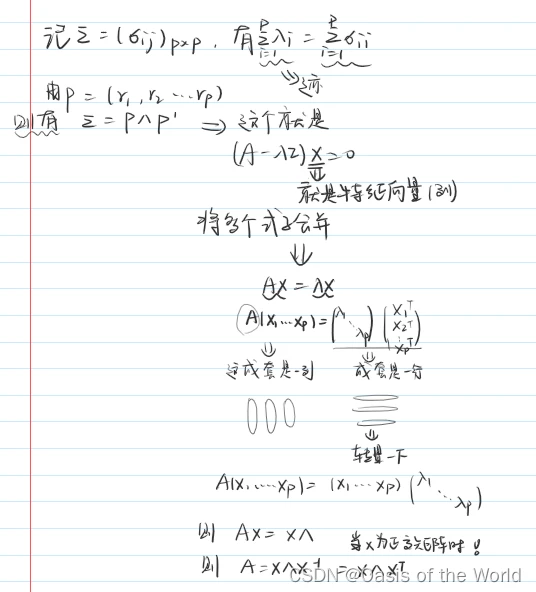 记 Σ = (σij)p×p, 有 Σ(i=1→p) λi = Σ(i=1→p) σii
⇒ 迹
用 P = (r1, r2 ⋯ rp)
则有 Σ = PΛP' ⇒ 这个就是
(A - λI) X = 0
⇓
就是特征向量(列)
将多个式子合并
⇓
AX = λX
A(X1 ⋯ Xp) = (λ1 ⋱ λp) (X1ᵀ X2ᵀ ⋮ Xpᵀ)
⇓ ⇓
成套是一列 成套是一行
⇓
转置一下
A(X1, ⋯ Xp) = (X1 ⋯ Xp) (λ1 ⋱ λp)
则 AX = XΛ 当X为正交矩阵时!
则 A = XΛX⁻¹ = XΛXᵀ
CSDN @Oasis of the World